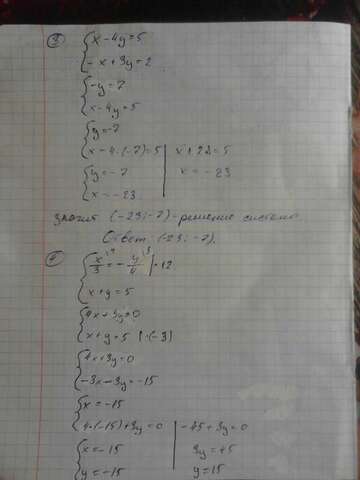 ③ { x - 4y = 5
- x + 3y = 2
{ -y = 7
x - 4y = 5
{ y = -7
x - 4·(-7) = 5 | x + 28 = 5
{ y = -7 | x = -23
x = -23
значит (-23; -7) - решение системы.
Ответ: (-23; -7).
{ x/3 \4 = - y/4 \3 | · 12
x + y = 5
{ 4x + 3y = 0
x + y = 5 | · (-3)
{ 4x + 3y = 0
-3x - 3y = -15
{ x = -15
4·(-15) + 3y = 0 | -45 + 3y = 0
{ x = -15 | 3y = 45
y = -15 | y = 15